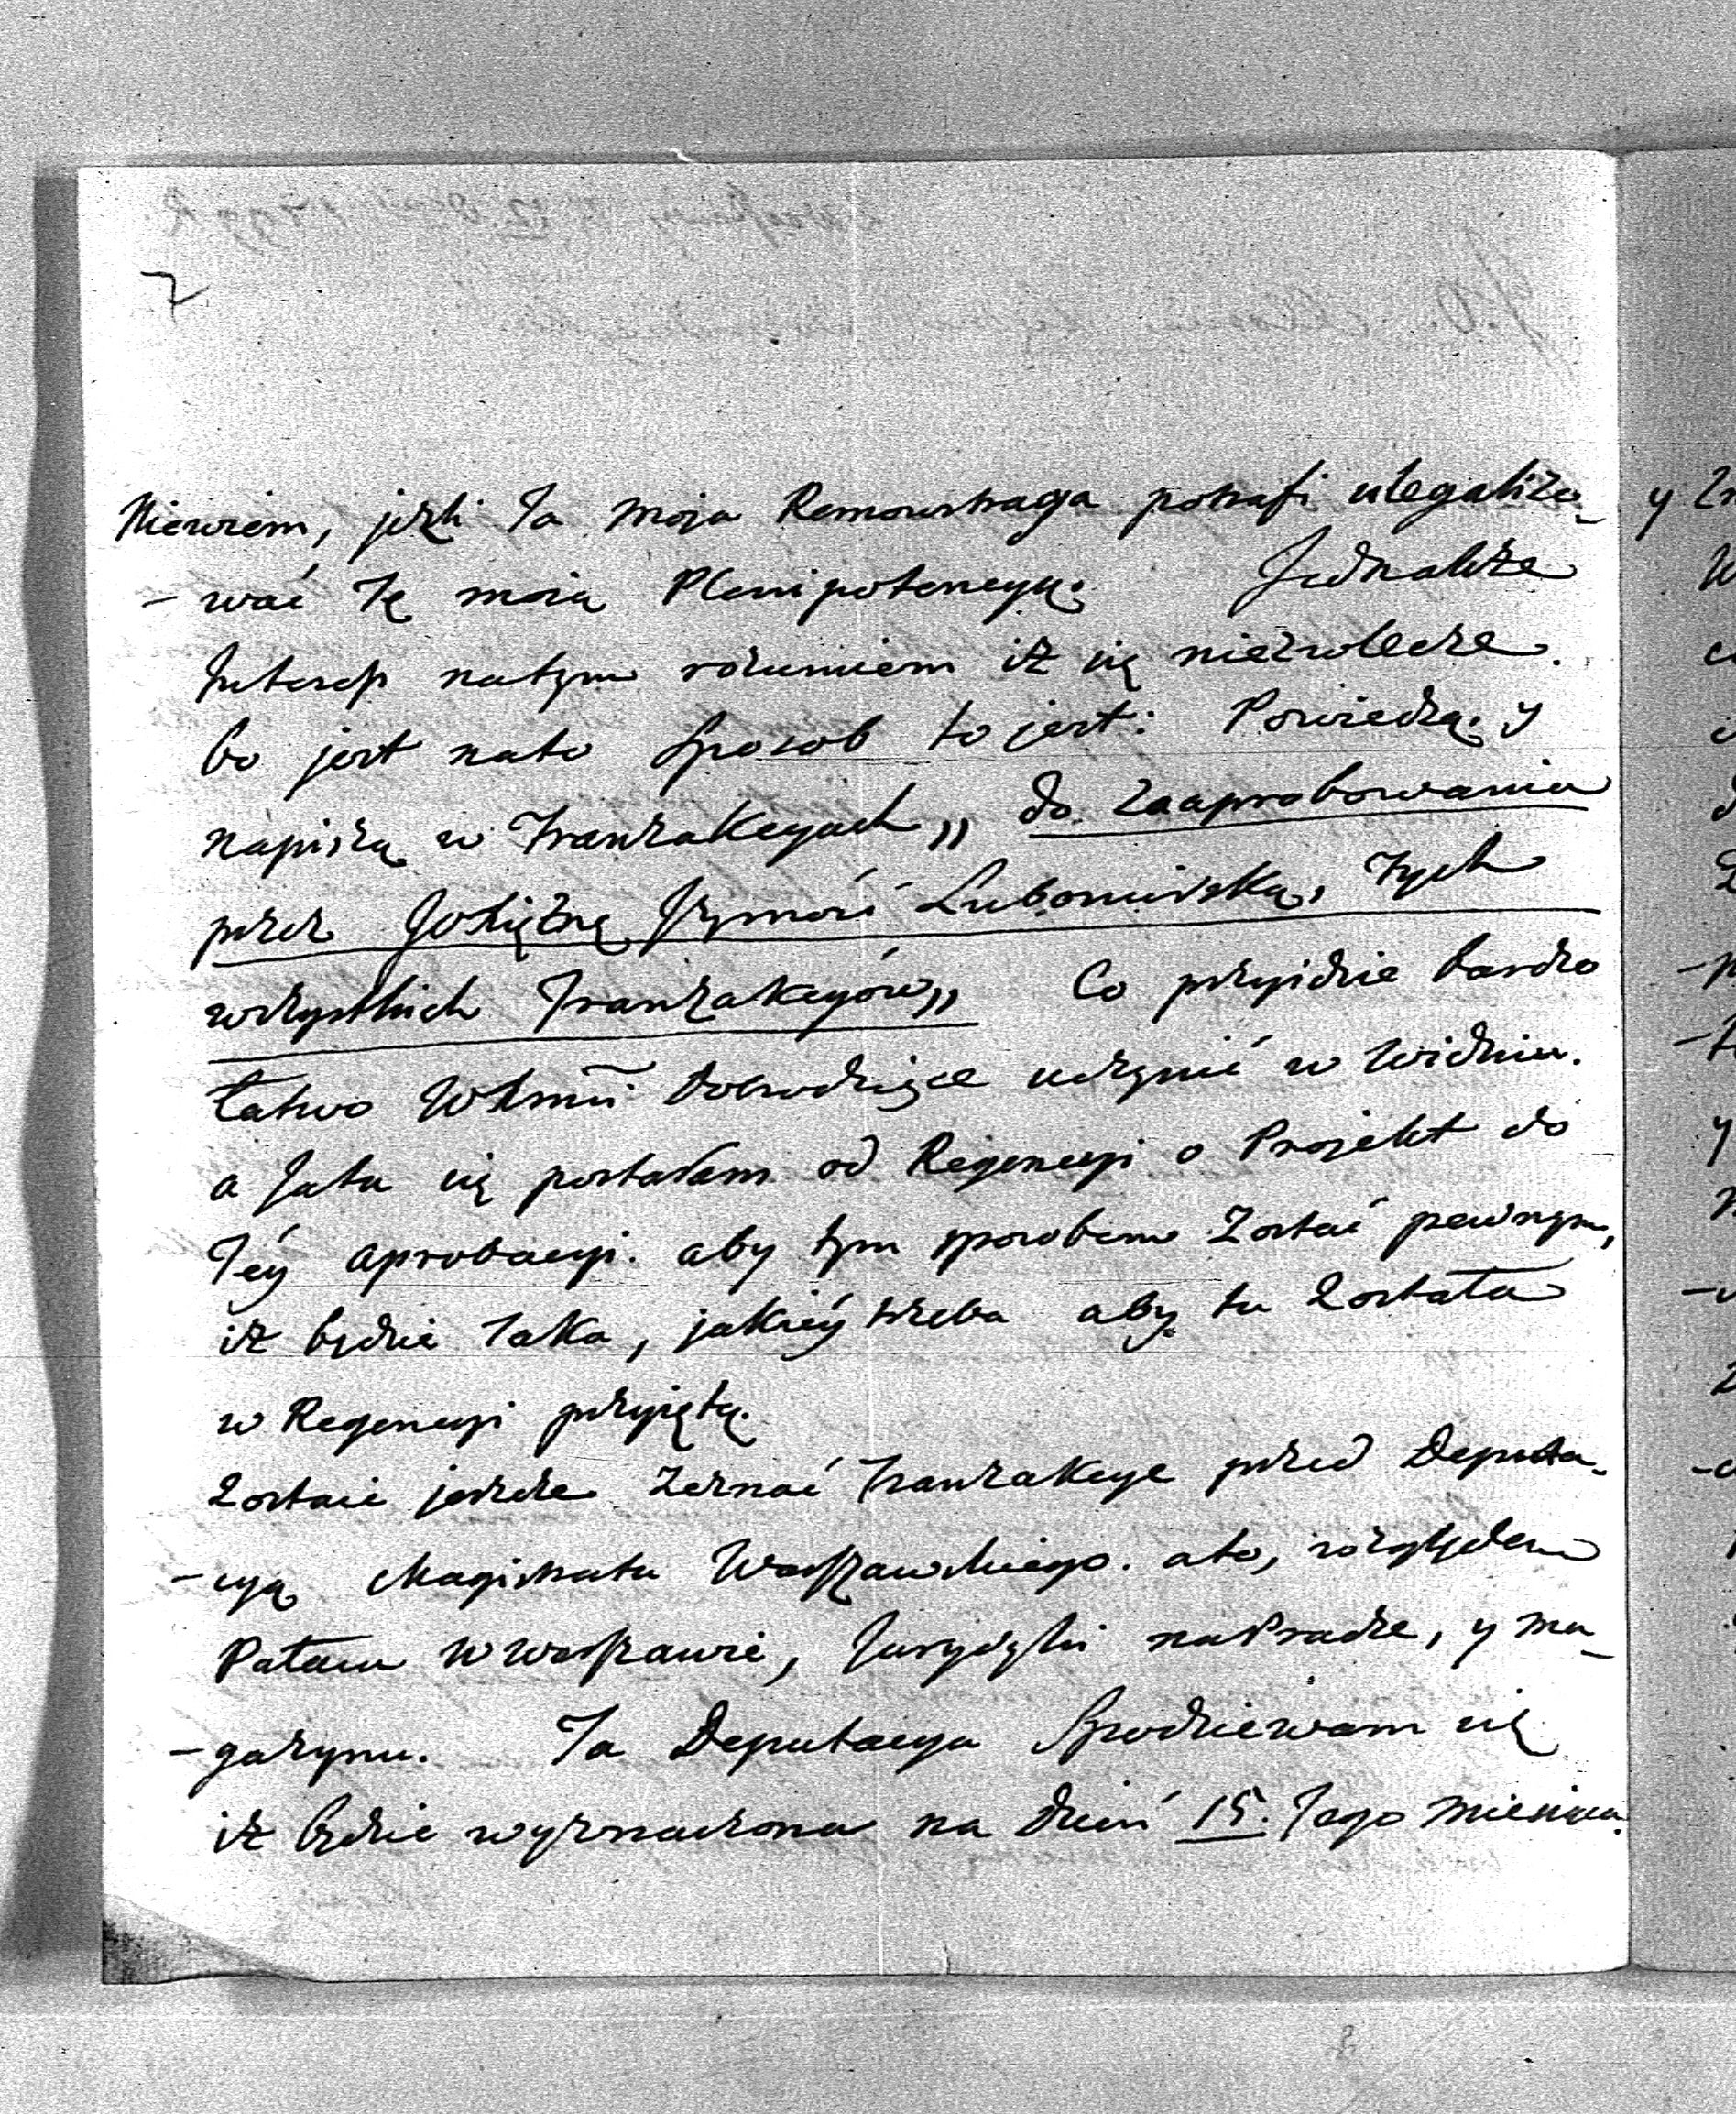 7
Niewiem, jeżli Ta moja Remonstracya potrafi ulegalizo_
- wać Tę moią Plenipotencyą. Jednakże
Interesś natym rozumiem iż się niezwlecze.
bo jest nato Sposob to jest: Powiedzą y
napiszą w Tranzakcyach „ do zaaprobowania
przez JOXiężnę Jeymość Lubomirską, Tych
wszystkich Tranzakcyów „ Co przyidzie bardzo
łatwo WXmci Dobrodzięce uczynić w Widniu.
a Jatu się postaram od Regencyi o Projekt do
Téy aprobacyi. aby tym sposobem Zostać pewnym,
iż będzie Taka, jakiéy trzeba aby tu Została
w Regencyi przyiętą.
Zostaie jeszcze Zeznać Tranzakcye przed Deputa-
- cyą Magistratu Warszawskiego. ato, względem
Pałacu w Warszawie, Jurydyki na Pradze, y ma_
- gazynu. Ta Deputacya Spodziewam się
iż będzie wyznaczona na dzień 15. Tego Miesiąca.